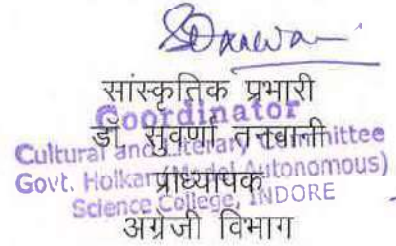 सांस्कृतिक प्रभारी
Coordinator
डॉ. सुवर्णा तनवानी
Cultural and Literary Committee
Govt. Holkar Model Autonomous)
प्राध्यापक
Science College, INDORE
अंग्रेजी विभाग